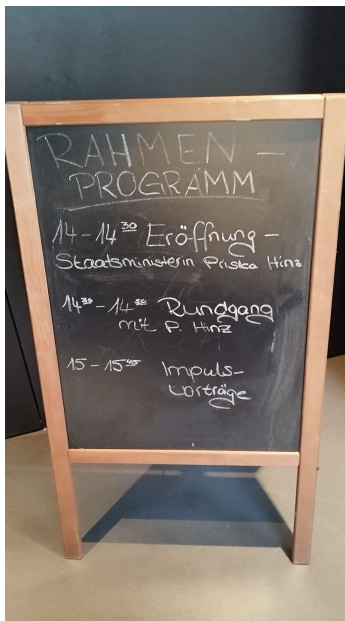 RAHMEN-
PROGRAMM
14-14³⁰ Eröffnung-
Staatsministerin Priska Hinz
14³⁰-14⁵⁰ Rundgang
mit P. Hinz
15-15⁴⁵ Impuls-
vorträge